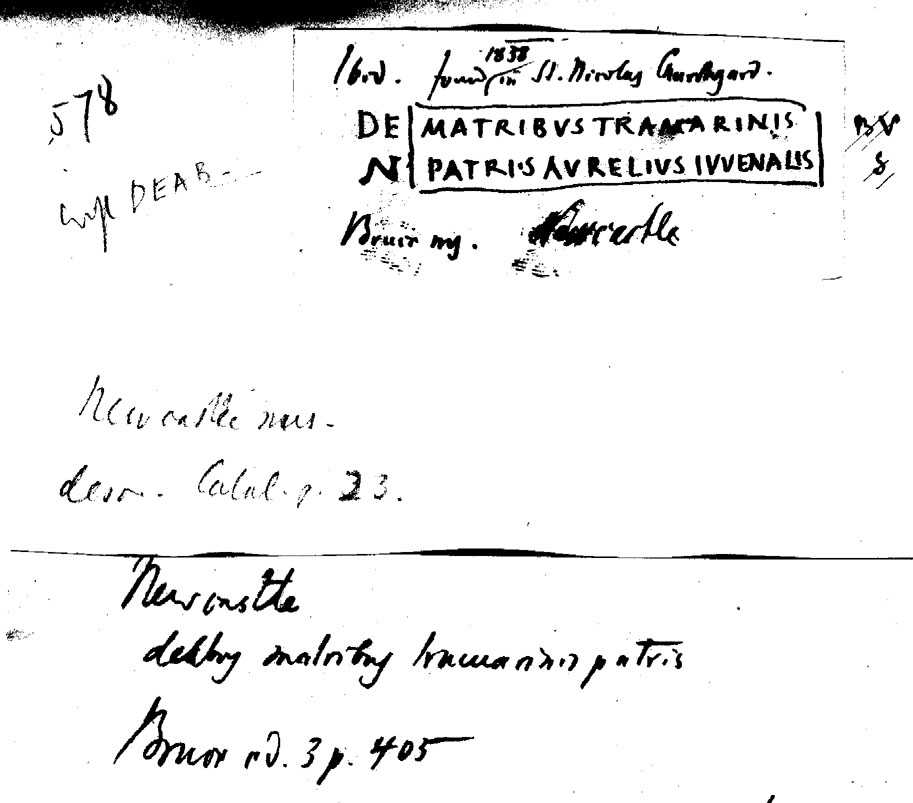 578
Ibid. found in 1838 St. Nicolas Churchyard.
DE MATRIBVS TRAMARINIS BV
N PATRIIS AVRELIVS IVVENALIS S
DEAB
Bruce ms. Newcastle
Newcastle mus.
descr. Catal. p. 23.
Newcastle
deabus matribus tramarinis patris
Bruce ed. 3 p. 405